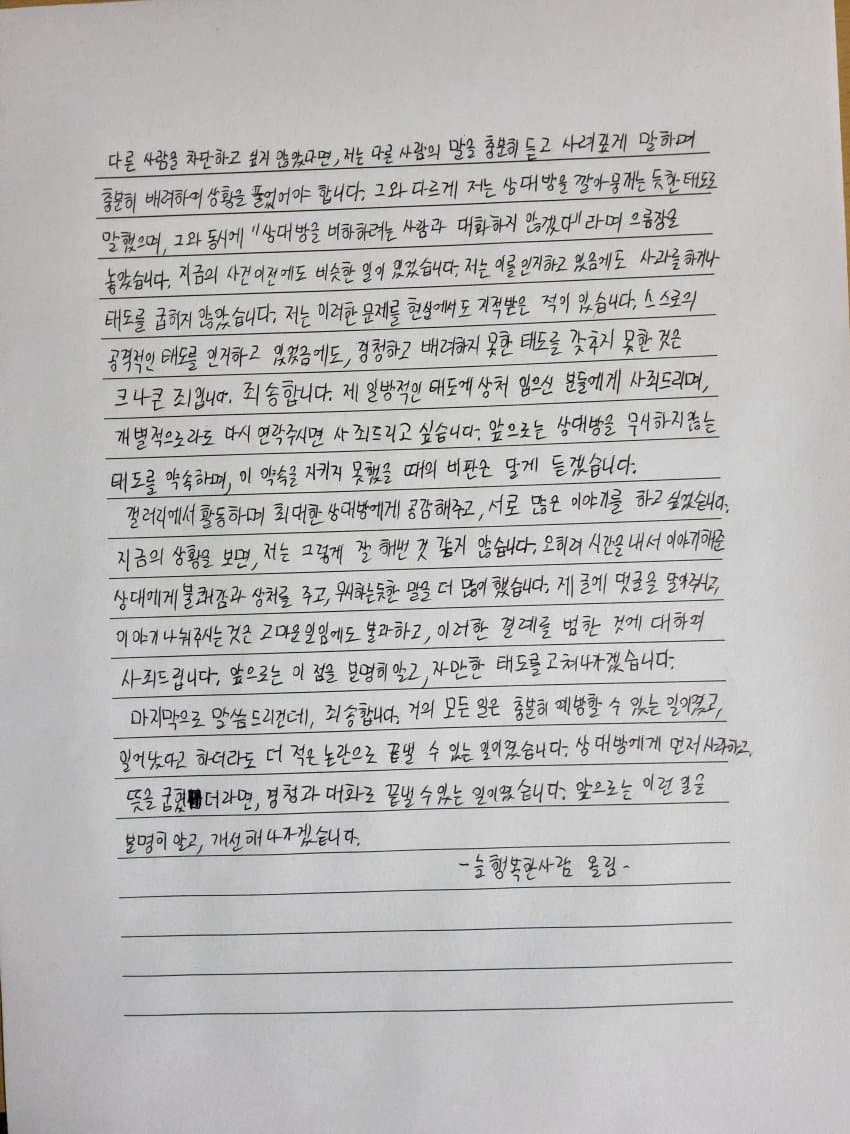 다른 사람을 차단하고 싶지 않았다면, 저는 다른 사람의 말을 충분히 듣고 사려깊게 말하며
충분히 배려하며 상황을 풀었어야 합니다. 그와 다르게 저는 상대방을 깔아뭉개는 듯한 태도로
말했으며, 그와 동시에 "상대방을 비하하려는 사람과 대화하지 않겠다" 라며 으름장을
놓았습니다. 지금의 사건 이전에도 비슷한 일이 있었습니다. 저는 이를 인지하고 있음에도 사과를 하거나
태도를 굽히지 않았습니다. 저는 이러한 문제를 현실에서도 지적받은 적이 있습니다. 스스로의
공격적인 태도를 인지하고 있었음에도, 경청하고 배려하지 못한 태도를 갖추지 못한 것은
크나큰 죄입니다. 죄송합니다. 제 일방적인 태도에 상처 입으신 분들에게 사죄드리며,
개별적으로라도 다시 연락주시면 사죄드리고 싶습니다. 앞으로는 상대방을 무시하지 않는
태도를 약속하며, 이 약속을 지키지 못했을 때의 비판은 달게 듣겠습니다.
갤러리에서 활동하며 최대한 상대방에게 공감해주고, 서로 많은 이야기를 하고 싶었습니다.
지금의 상황을 보면, 저는 그렇게 잘 해낸 것 같지 않습니다. 오히려 시간을 내서 이야기해준
상대에게 불쾌감과 상처를 주고, 무시하는듯한 말을 더 많이 했습니다. 제 글에 댓글을 달아주시고,
이야기 나눠주시는 것은 고마운 일임에도 불과하고, 이러한 결례를 범한 것에 대하여
사죄드립니다. 앞으로는 이 점을 분명히 알고, 자만한 태도를 고쳐나가겠습니다.
마지막으로 말씀드리건데, 죄송합니다. 거의 모든 일은 충분히 예방할 수 있는 일이였고,
일어났다고 하더라도 더 적은 논란으로 끝낼 수 있는 일이였습니다. 상대방에게 먼저 사과하고,
뜻을 굽혔더라면, 경청과 대화로 끝낼 수 있는 일이였습니다. 앞으로는 이런 일을
분명히 알고, 개선해나가겠습니다.
- 늘행복한사람 올림 -